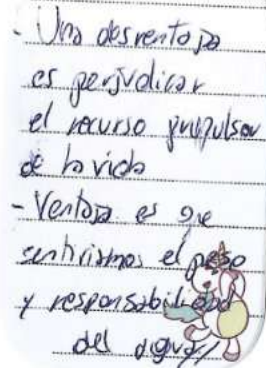 - Una desventaja
es perjudicar
el recurso propulsor
de la vida
- Ventaja es que
sentiriamos el peso
y responsabilidad
del agua//